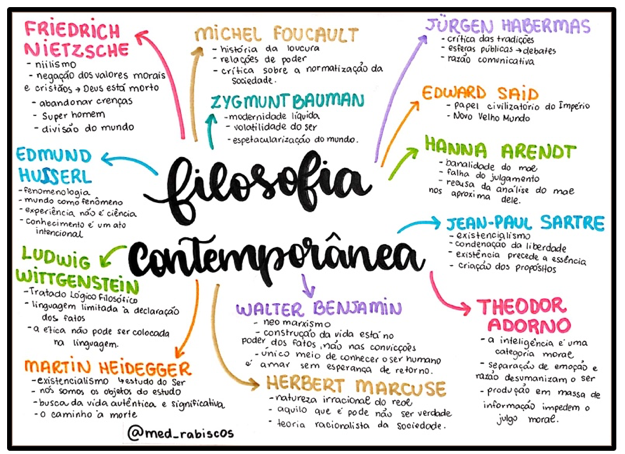 FRIEDRICH
NIETZSCHE
- niilismo
- negação dos valores morais
e cristãos → Deus está morto
- abandonar crenças
- Super homem
- divisão do mundo
MICHEL FOUCAULT
- história da loucura
- relações de poder
- crítica sobre a normatização da
sociedade.
JÜRGEN HABERMAS
- crítica das tradições
- esferas públicas → debates
- razão comunicativa
ZYGMUNT BAUMAN
- modernidade líquida
- volatilidade do ser
- espetacularização do mundo.
EDWARD SAID
- papel civilizatório do Império
- Novo Velho Mundo
HANNA ARENDT
- banalidade do mal
- falha do julgamento
- recusa da análise do mal
nos aproxima dele.
EDMUND
HUSSERL
- fenomenologia
- mundo como fenômeno
- experiência não é ciência
- conhecimento é um ato
intencional
filosofia
contemporânea
JEAN-PAUL SARTRE
- existencialismo
- condenação da liberdade
- existência precede a essência
- criação dos propósitos
LUDWIG
WITTGENSTEIN
- Tratado Lógico Filosófico
- linguagem limitada à declaração
dos fatos
- a ética não pode ser colocada
na linguagem.
WALTER BENJAMIN
- neo marxismo
- construção da vida está no
poder dos fatos, não nas convicções
- unico meio de conhecer o ser humano
é amar sem esperança de retorno.
THEODOR
ADORNO
- a inteligência é uma
categoria moral
- separação de emoção e
razão desumanizam o ser
- produção em massa de
informação impedem o
julgo moral.
MARTIN HEIDEGGER
- existencialismo → estudo do Ser
- nós somos os objetos do estudo
- busca da vida autêntica e significativa
- o caminho à morte
HERBERT MARCUSE
- natureza irracional do real
- aquilo que é pode não ser verdade
- teoria racionalista da sociedade.
@med_rabiscos